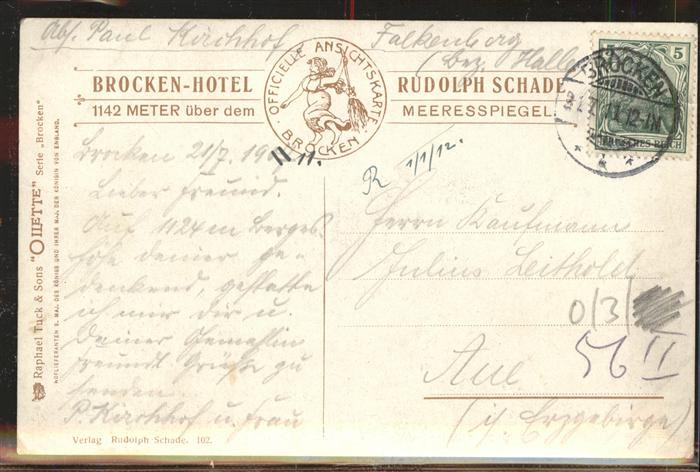 Abs. Paul Kirchhof Falkenberg
(bez. Halle)
OFFICIELLE ANSICHTSKARTE
BROCKEN
BROCKEN-HOTEL
1142 METER über dem
RUDOLPH SCHADE
MEERESSPIEGEL
5
BROCKEN
DEUTSCHES REICH
Raphael Tuck & Sons "OILETTE" Serie „Brocken"
HOFLIEFERANTEN S. MAJ. DES KÖNIGS UND IHRER MAJ. DER KÖNIGIN VON ENGLAND.
Brocken 21/7. 11.
Lieber Freund.
Auf 1124 m Berges-
höhe deiner ge-
denkend, gestatte
ich mir dir u.
deiner Gemahlin
freundl. Grüße zu
senden.
P. Kirchhof u. Frau
R 1/1/12.
Herrn Kaufmann
Julius Leithold
0/3/
56 II
Aue
(i/ Erzgebirge)
Verlag Rudolph Schade. 102.